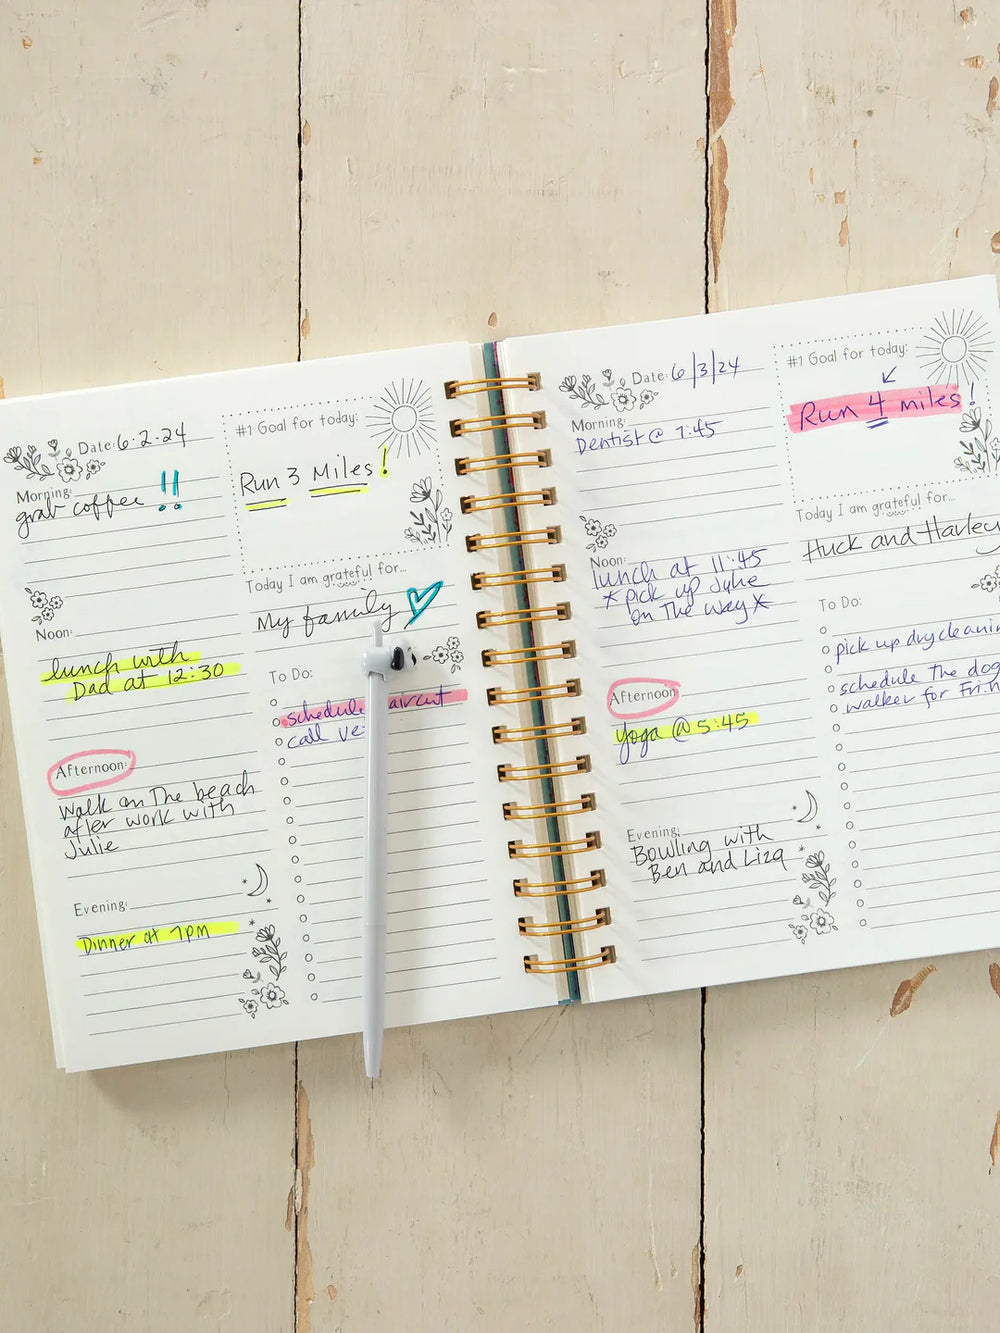 Date: 6.2.24
Morning:
grab coffee !!
Noon:
lunch with
Dad at 12:30
Afternoon:
Walk on The beach
after work with
Julie
Evening:
Dinner at 7pm
#1 Goal for today:
Run 3 Miles!
Today I am grateful for...
My family
To Do:
schedule haircut
call ve
Date: 6/3/24
Morning:
Dentist @ 7:45
Noon:
lunch at 11:45
* pick up Julie
on The way *
Afternoon
yoga @ 5:45
Evening:
Bowling with
Ben and Liza
#1 Goal for today:
Run 4 miles!
Today I am grateful for...
Huck and Harley
To Do:
pick up drycleanin
schedule the dog
walker for Fri.n